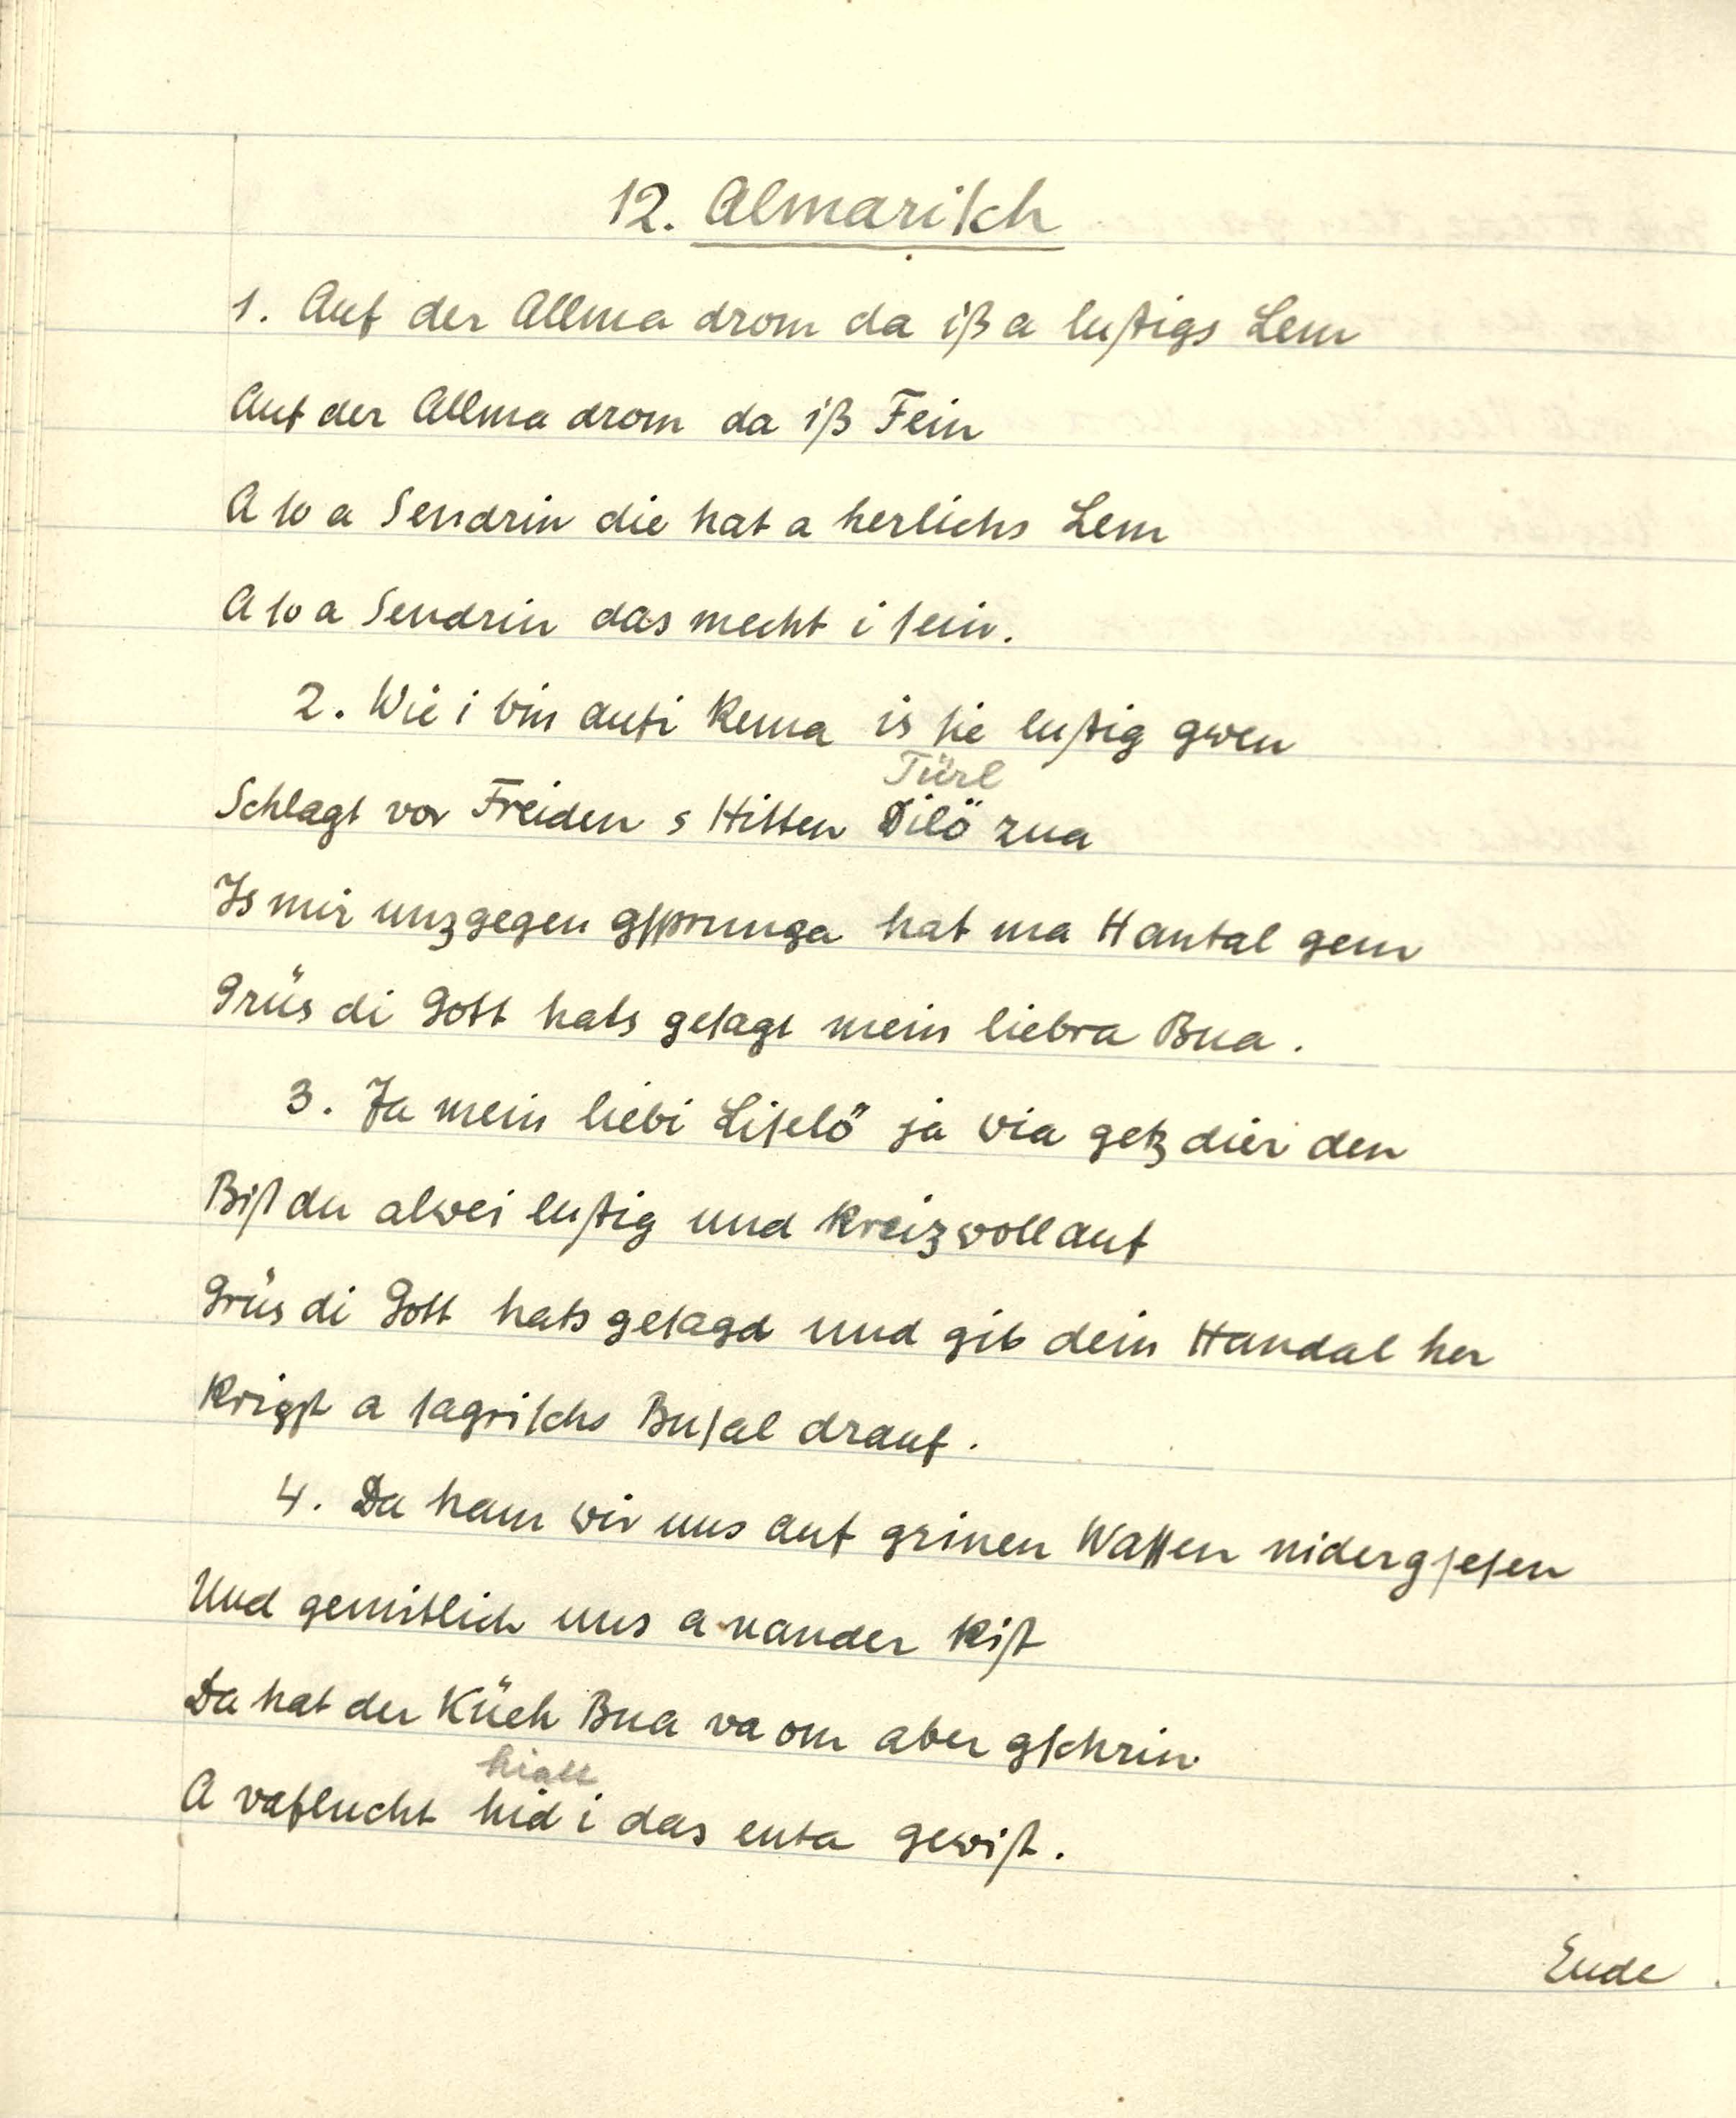 12. Almarisch
1. Auf der Allma drom da iß a lustigs Lem
Auf der Allma drom da iß Fein
A so a Sendrin die hat a herlichs Lem
A so a Sendrin das mecht i sein.
2. Wie i bin aufi kema is sie lustig gwen
Türl
Schlagt vor Freiden s Hitten Dilö zua
Is mir unzgegen gsprunga hat ma Hantal gem
Grüs di Gott hats gesagt mein liebra Bua.
3. Ja mein liebi Liselö ja wia getz dier den
Bist du alwei lustig und kreizwollauf
Grüs di Gott hats gesagd und gib dein Handal her
Krigst a sagrischs Busal drauf.
4. Da ham wir uns auf grinen Wassen nidergsesen
Und gemitlich uns a nander kist
Da hat der Küeh Bua va om aber gschrin
hiatt
A vaflucht hid i das enta gewist.
Ende.